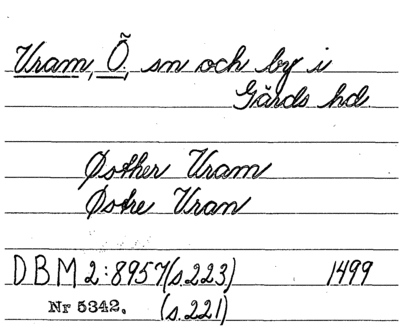 Vram, Õ. sn och by i
Gärds hd.
Østher Vram
Østre Vran
DBM 2:8957 (s.223) 1499
Nr 5342. (s.221)